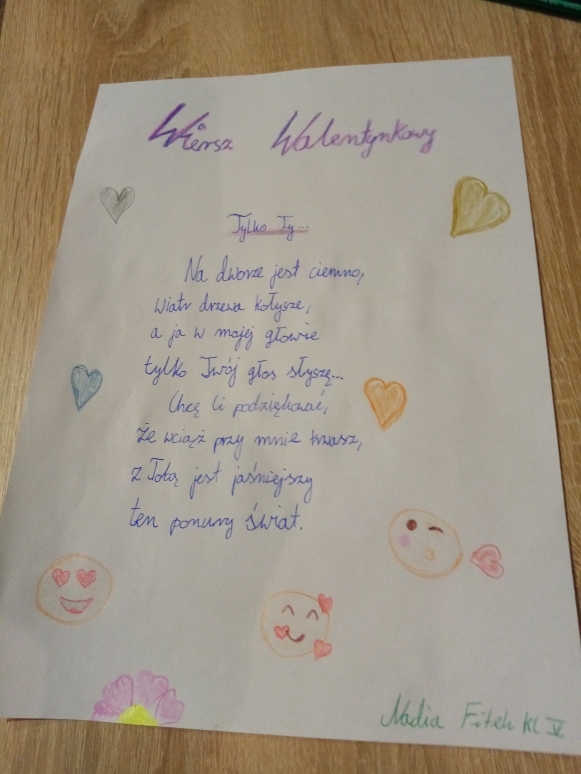 Wiersz Walentynkowy
Tylko Ty...
Na dworze jest ciemno,
wiatr drzewa kołysze,
a ja w mojej głowie
tylko Twój głos słyszę...
Chcę Ci podziękować,
że wciąż przy mnie trwasz,
z Tobą jest jaśniejszy
ten ponury świat.
Nadia Fitek kl V